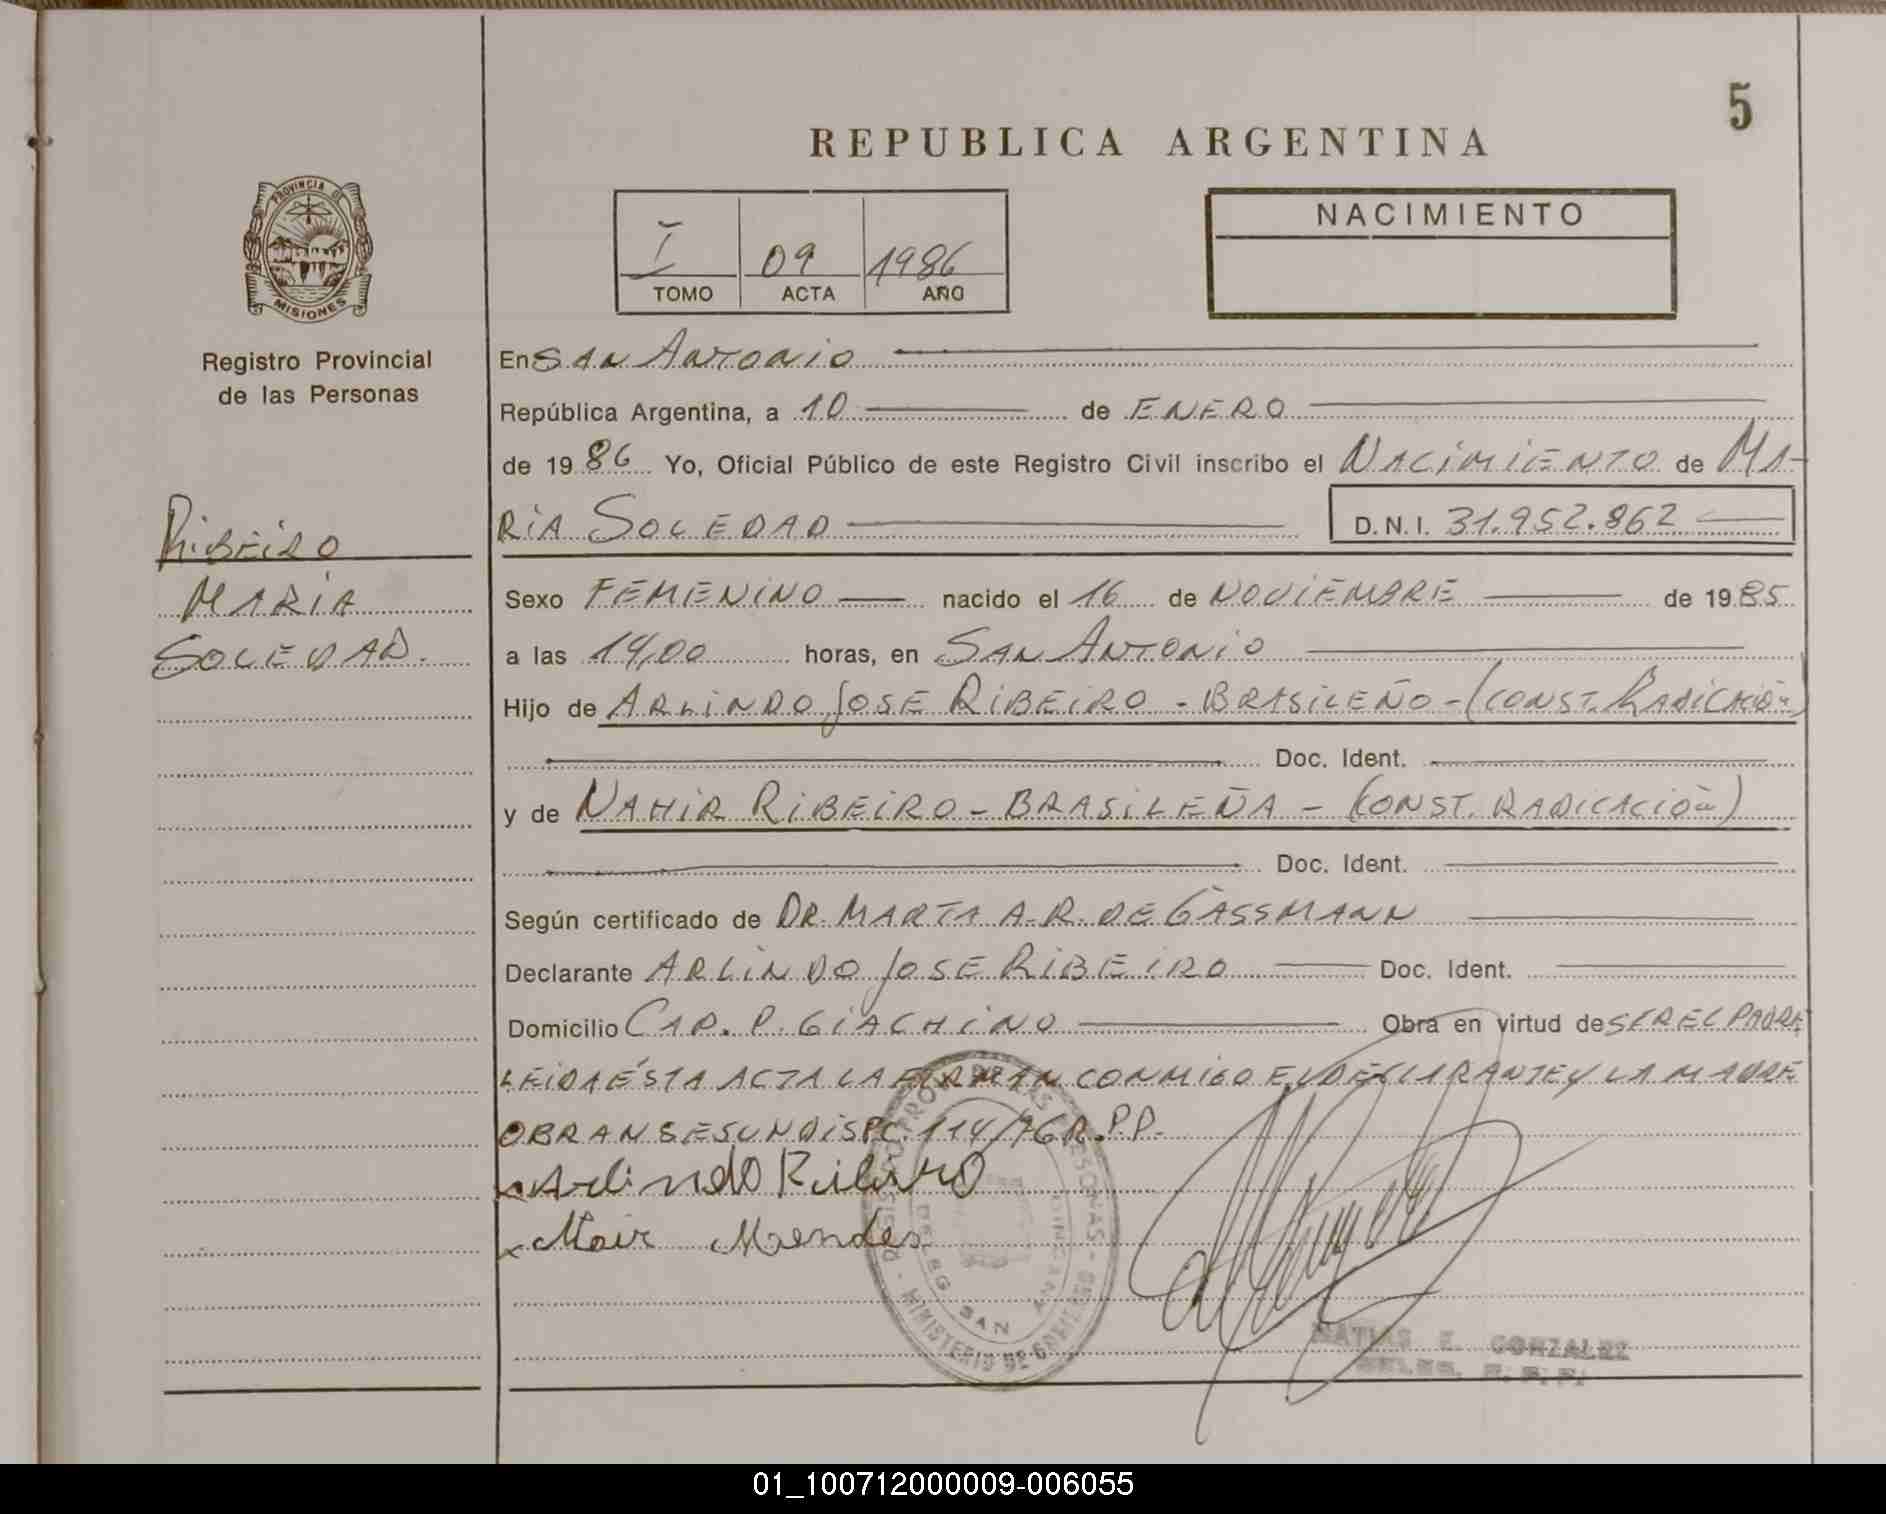 5
REPUBLICA ARGENTINA
PROVINCIA DE
MISIONES
Registro Provincial
de las Personas
I 09 1986
TOMO ACTA AÑO
NACIMIENTO
En SAN ANTONIO
República Argentina, a 10 de ENERO
de 1986 Yo, Oficial Público de este Registro Civil inscribo el NACIMIENTO de MA-
RIA SOLEDAD D.N.I. 31.952.862
RIBEIRO
MARIA
SOLEDAD.
Sexo FEMENINO nacido el 16 de NOVIEMBRE de 1985
a las 14,00 horas, en SAN ANTONIO
Hijo de ARLINDO JOSE RIBEIRO - BRASILEÑO - (CONST. RADICACIÓN)
Doc. Ident.
y de NAHIR RIBEIRO - BRASILEÑA - (CONST. RADICACIÓN)
Doc. Ident.
Según certificado de DR. MARTA A. R. DE GASSMANN
Declarante ARLINDO JOSE RIBEIRO Doc. Ident.
Domicilio CAP. P. GIACHINO Obra en virtud de SER EL PADRE
LEIDA ÉSTA ACTA LA FIRMAN CONMIGO EL DECLARANTE Y LA MADRE
OBRAN SEGUN DISPC. 114/76 R.P.P.
x Arlindo Ribeiro
x Nair Mendes
DELEG SAN
MINISTERIO DE GOBIERNO
MATIAS E. GONZALEZ
DELEG. R. P. P.
01_100712000009-006055